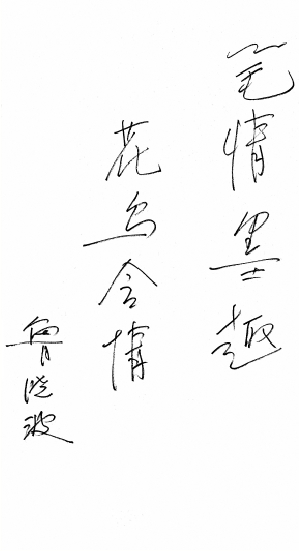 笔情墨趣
花鸟含情
鲁晓波